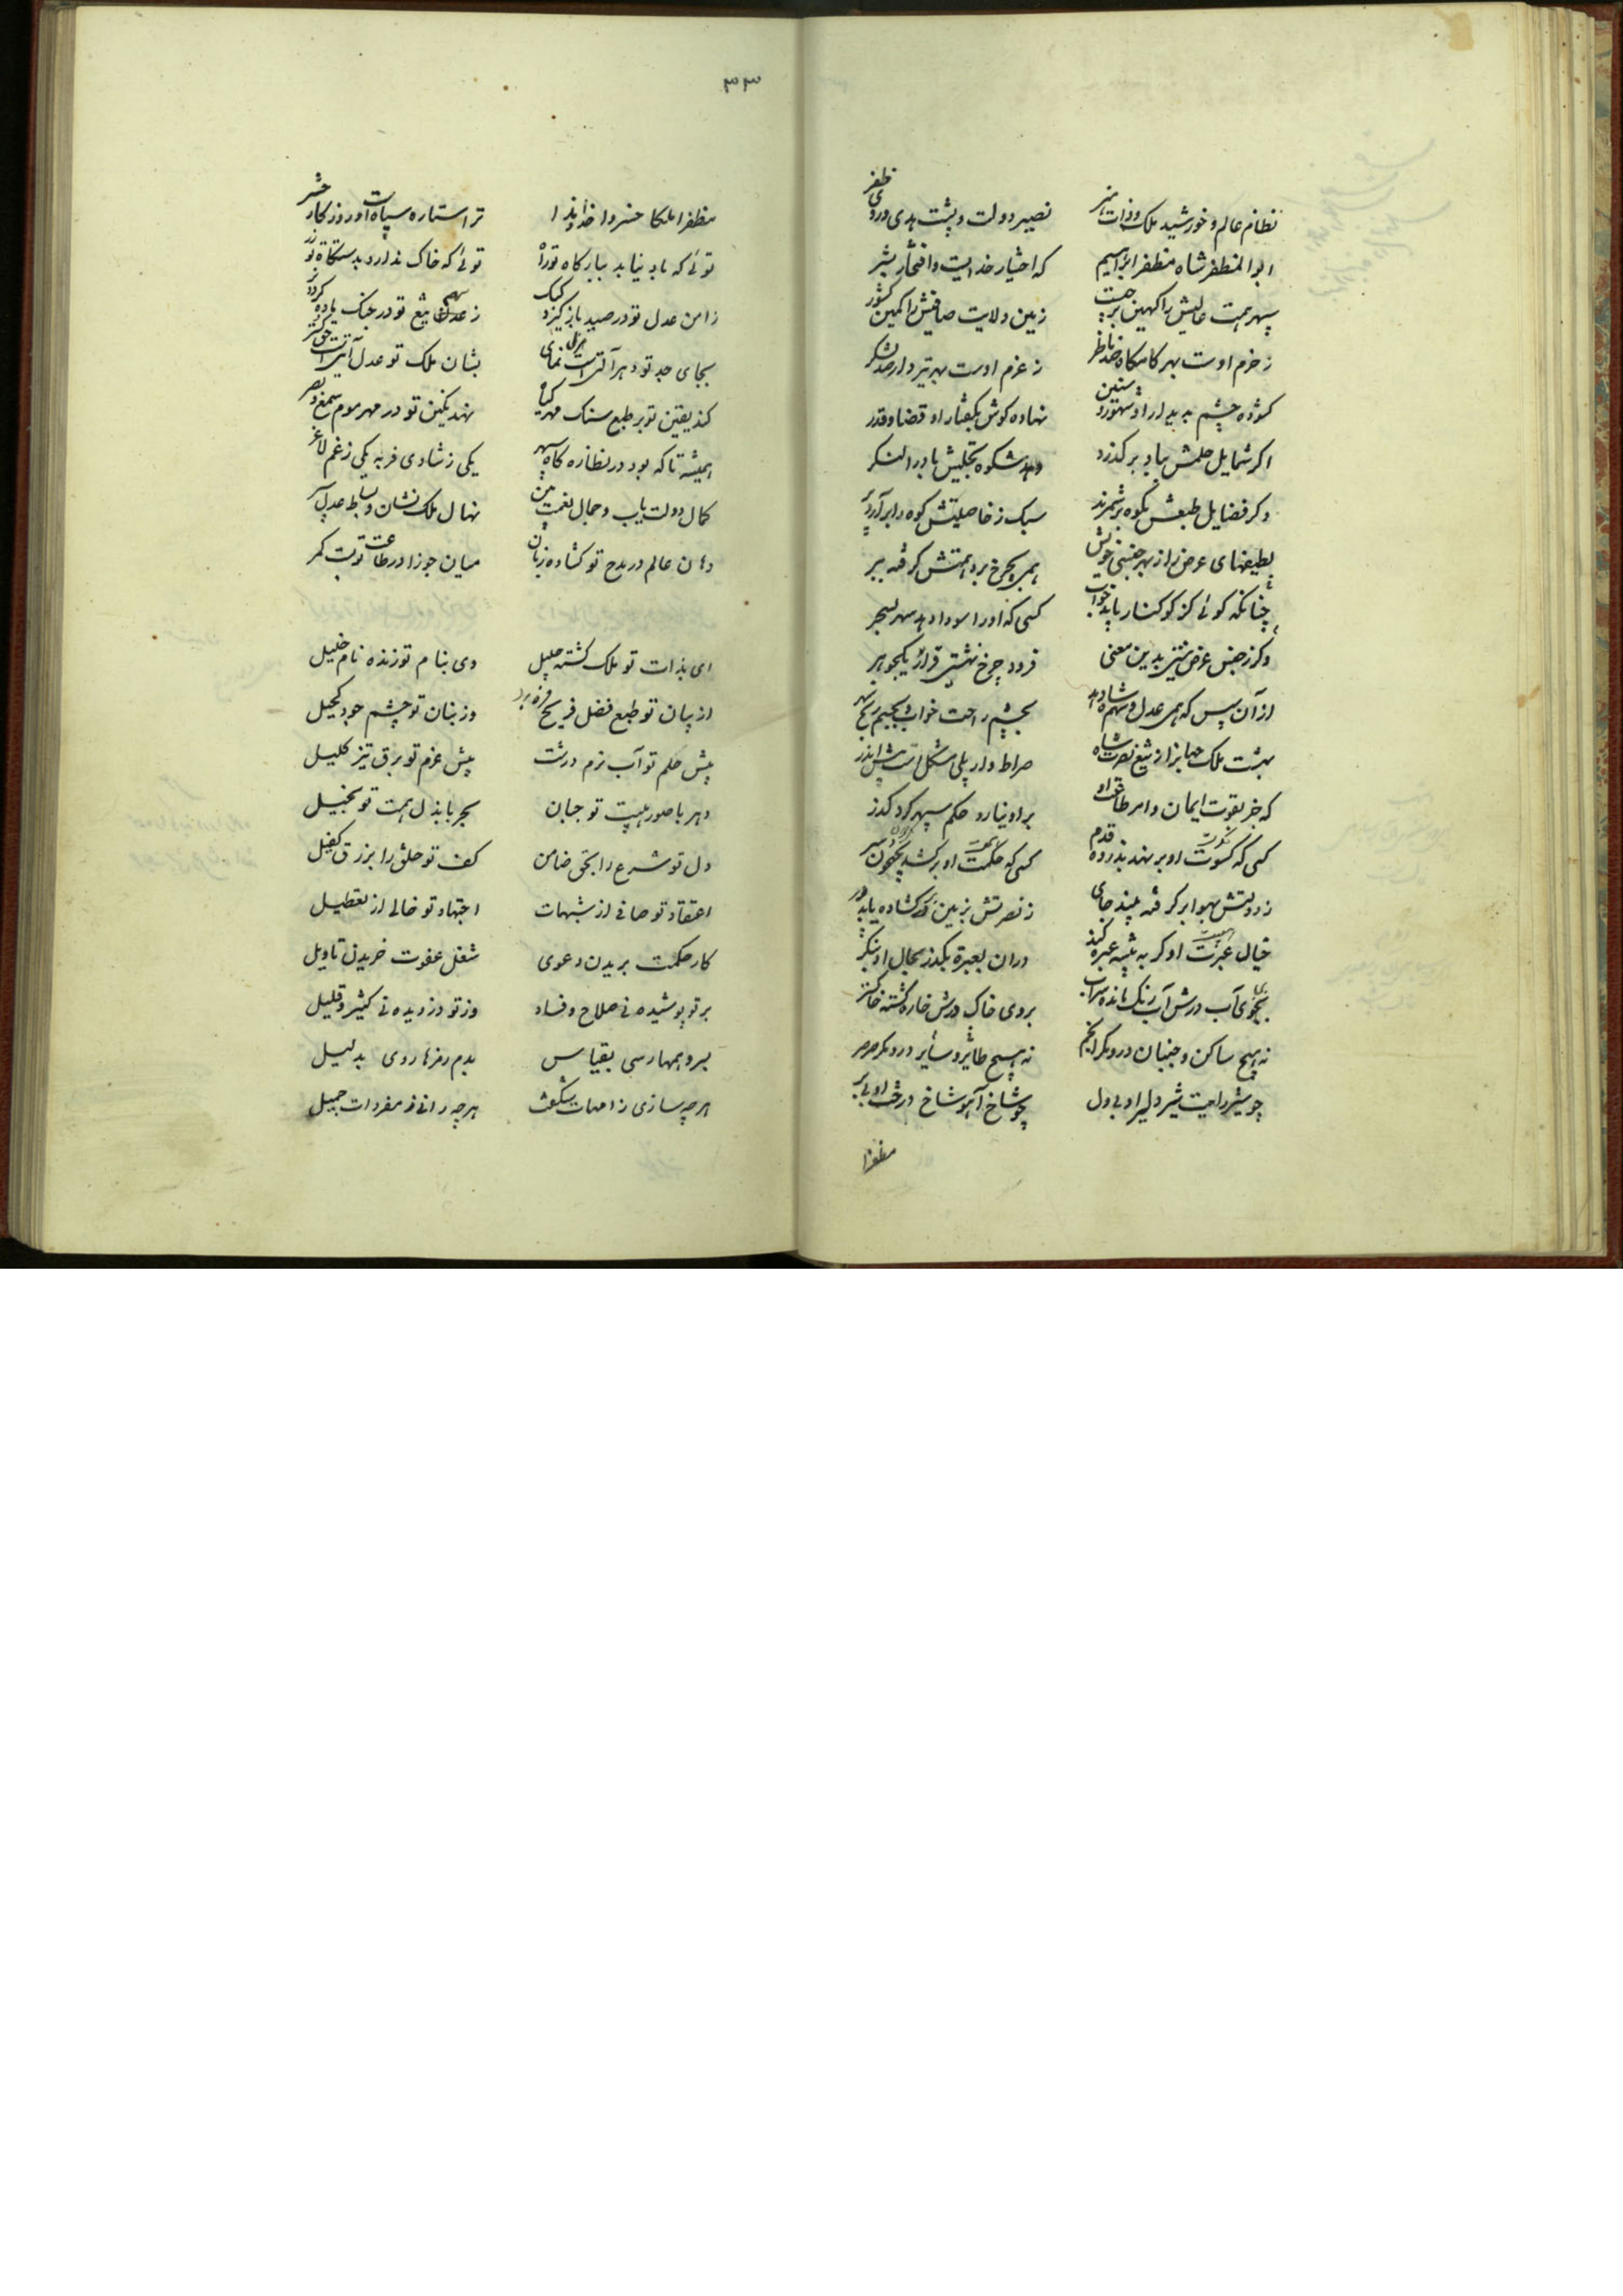 نظام عالم و خورشید ملک و ذات هنر نصیر دولت و پشت هدی و روی ظفر
ابوالمظفر شاه مظفر ابراهیم که اختیار خدایست و افتخار بشر
سپهر همت عالیش را کهین زمین ولایت صافیش را کمین کشور
ز حزم اوست بهر کامکاه صد ناظر ز عزم اوست بهر تیر دار صد لشکر
کشوده چشم به بدیدار او شهور و سنین نهاده کوش بکفتار او قضا و قدر
اکر شمایل حلمش بباد بر کذرد دهد شکوه تجلیش باد را لنکر
وکر فضایل طبعش بکوه برشمرند سبک ز خاصیتش کوه را برآرد پر
بطیعهای عرض را از بهر جنبش خویش همی بچرخ برد همتش کرفته ببر
چنانکه کوئی کز کوکنار یابد خواب کسی که او را سودا دهد سهر بسحر
وکر ز جنس عرض نیستی بدین معنی فرود چرخ نشستی قرار یکجوهر
از آن سپس که همی عدل و سهم شاه دهد بچشم راحت خواب و بجسم رنج سهر
بهشت ملک جهانرا ز تیغ نصرت شاه صراط وار پلی مشکل است پیش اندر
که جز بقوت ایمان و امر طاعت او بر او نیارد حکم سپهر کرد کذر
کسی که کسوت او بر نهد بذروه قدم کسی که حکمت او بر کشد بکیوان سر
ز دولتش بهوا بر کرفته بیند جای ز نصرتش بزمین در کشاده یابد در
خیال عبرت او کر به بیشه عبره کند در آن بعبرة بکذر بحال او بنکر
بجوی آب درش آب رنک مانده سراب بروی خاک درش خاره کشته خاکستر
نه هیچ ساکن و جنبان درو مکر انجم نه هیچ طائر و سائر درو مکر صرصر
چو شیر رایت شیر دلیر او بی دل چو شاخ آهو شاخ درخت او بی بر
مظفرا
۳۳
مظفرا ملکا خسروا خداوندا ترا ستاره سپاهست و روزکار حشر
توئی که باد نیابد ببارکاه تو راه توئی که خاک ندارد بدستکاه تو زر
ز امن عدل تو در صید باز کیرد کبک ز سهم تیغ تو در جنک ماده کردد نر
بجای جد تو دهر آلتی است هزل نمای بشان ملک تو عدل آیتی است حق کستر
کند یقین تو بر طبع سنک مهر کیا نهد نکین تو در مهر موم سمع و بصر
همیشه تا که بود در نظاره کاه سپهر یکی ز شادی فربه یکی ز غم لاغر
کمال دولت یاب و جمال نعمت بین نهال ملک نشان و بساط عدل سپر
دهان عالم در مدح تو کشاده زبان میان جوزا در طاعت تو بست کمر
ای بذات تو ملک کشته جلیل وی بنام تو زنده نام خلیل
از بیان تو طبع فضل فره برد وز بنان تو چشم جود کحیل
پیش حلم تو آب نرم درشت پیش عزم تو برق تیز کلیل
دهر با صورهیبت تو جبان بحر با بذل همت تو بخیل
دل تو شرع را بحق ضامن کف تو خلق را برزق کفیل
اعتقاد تو صافی از شبهات اجتهاد تو خالی از تعطیل
کار حکمت بریدن دعوی شغل عفوت خریدن تاویل
بر تو پوشیده نی صلاح و فساد وز تو دزدیده نی کثیر و قلیل
بسر وهمها رسی بقیاس بدم رمزها روی بدلیل
هر چه سازی ز امهات شکفت هر چه رانی ز مفردات جمیل